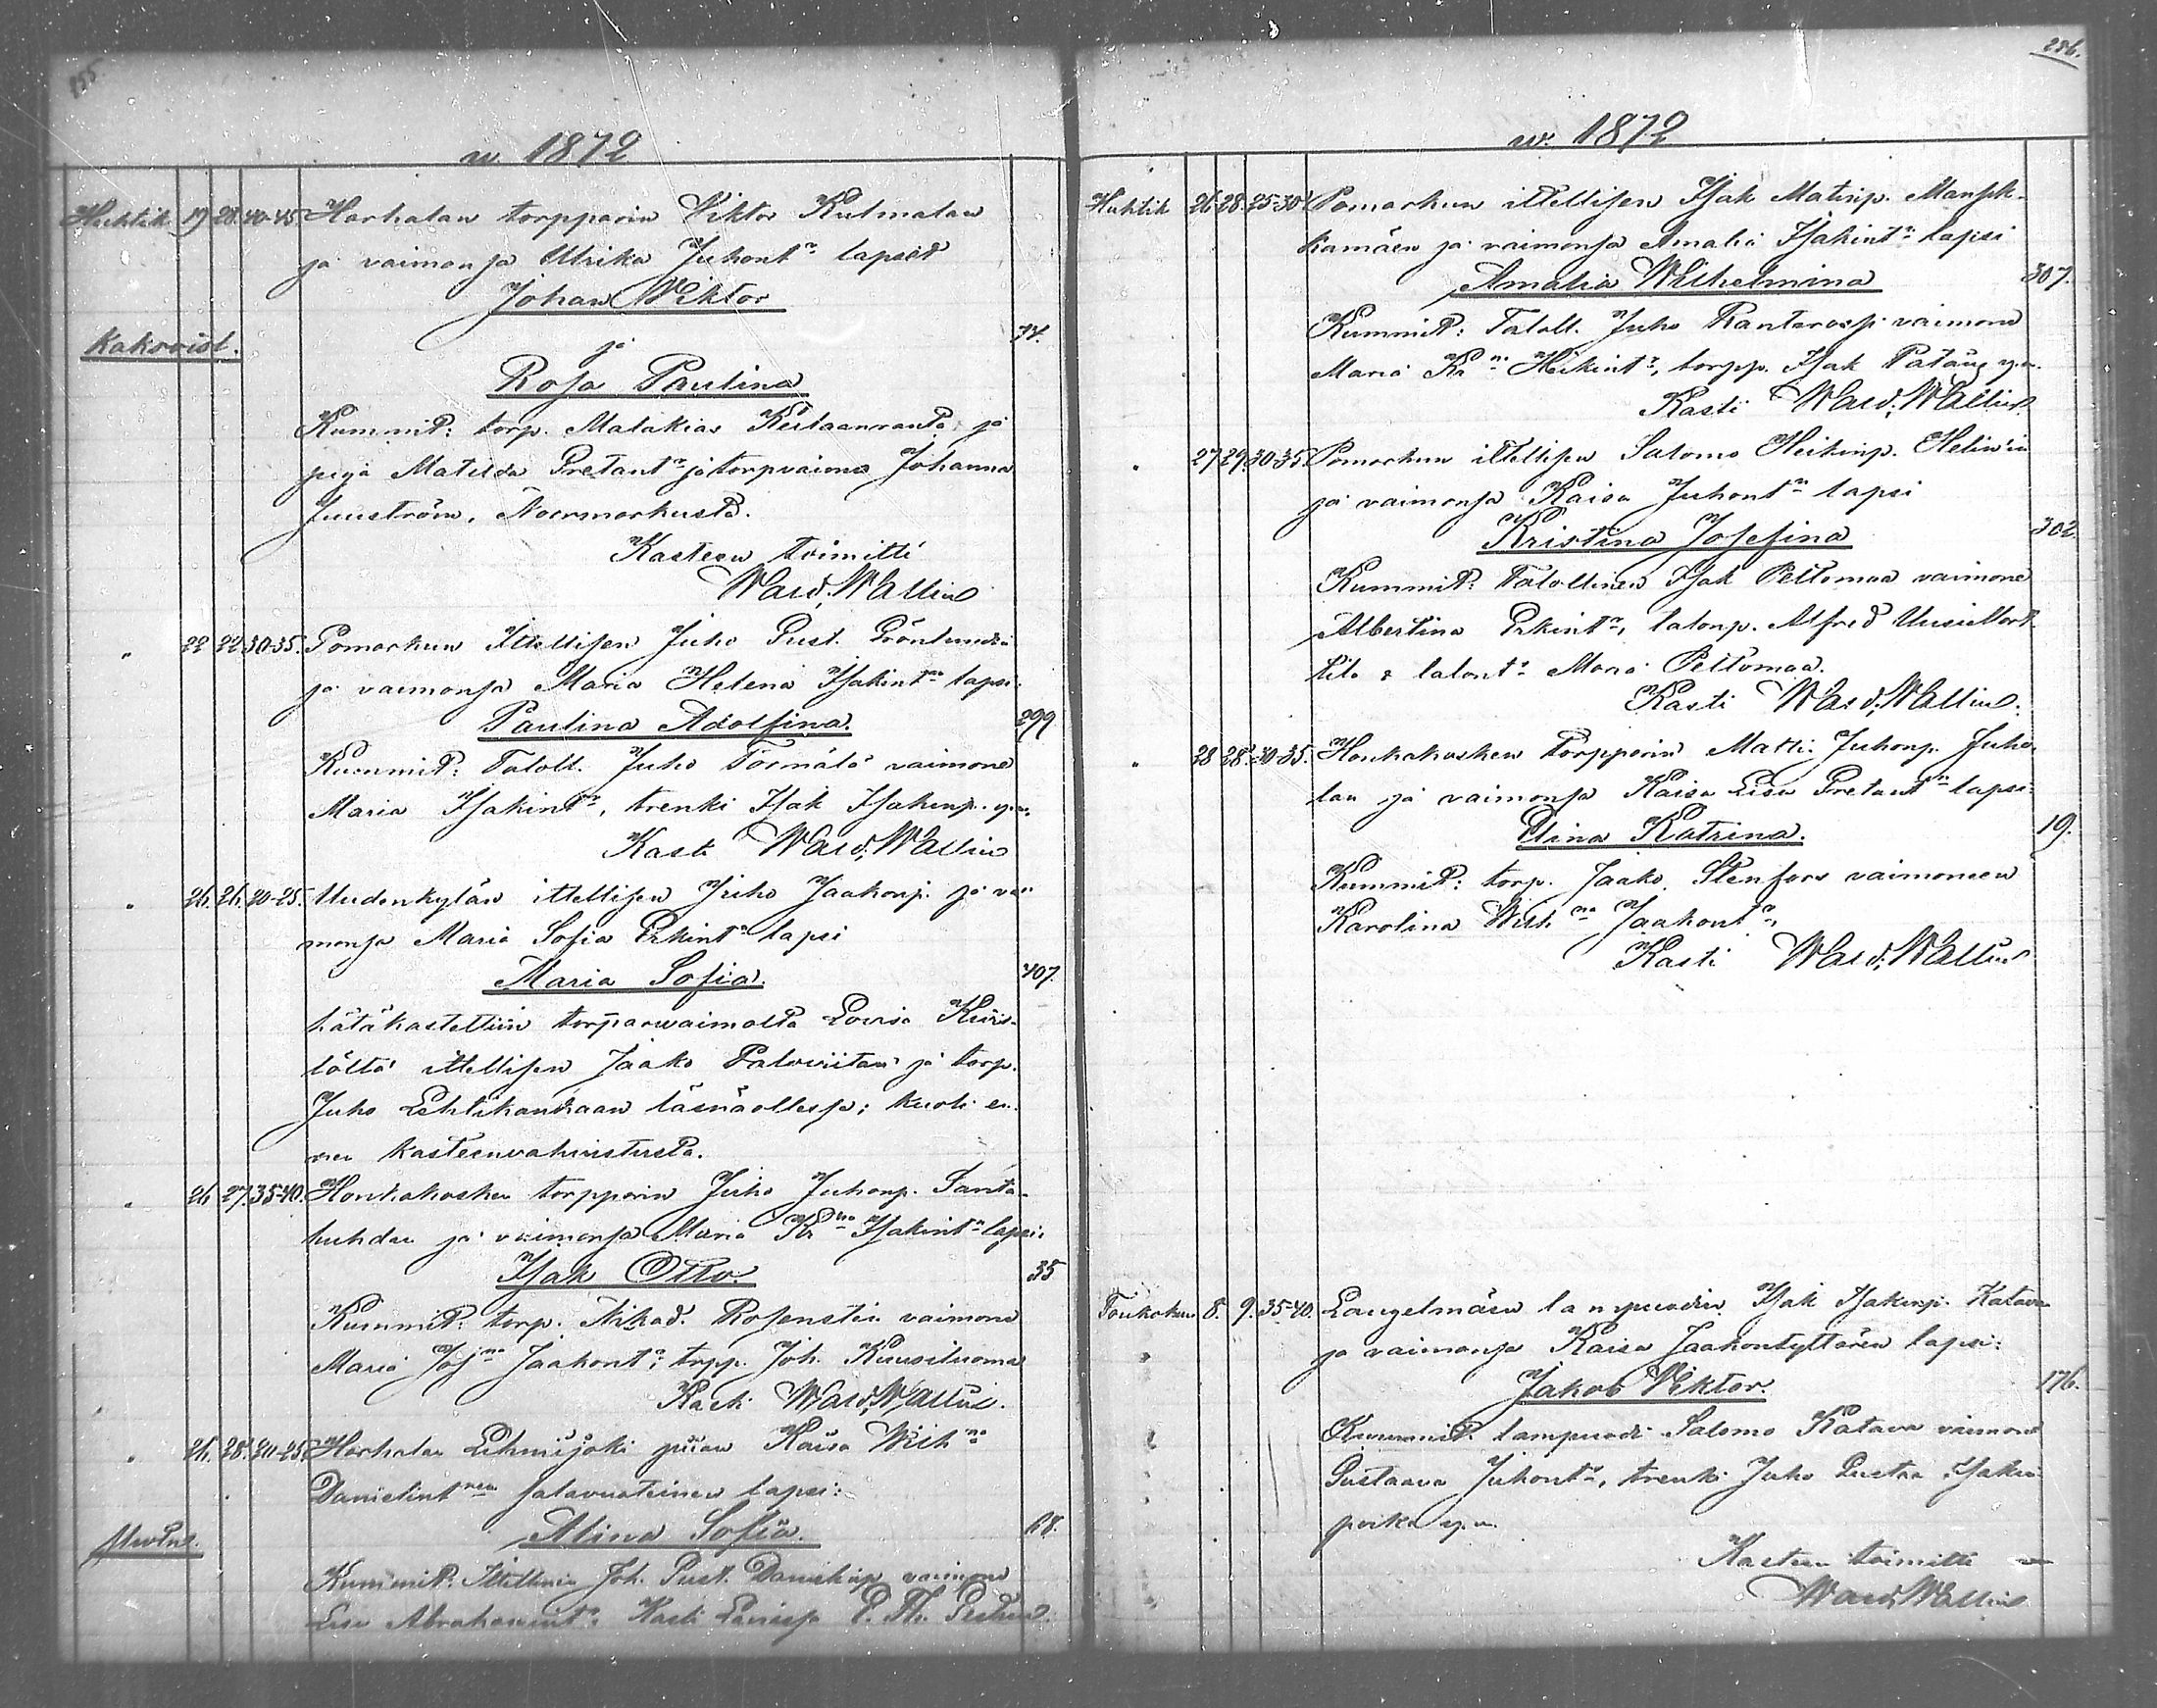 255.
w 1872
Huhtik 19 28. 40-45. Harhalan torpparin Viktor Kulmalan
ja vaimonsa Ulrika Juhont:r lapset
Johan Viktor
Kaksoist. ja 74.
Rosa Paulina
Kummit: torp. Malakias Keulaanranta ja
piga Matilda Gretant:r ja torpvaimo Johanna
Juuström, Noormarkusta.
Kasteen toimitti
Wald. Wallin
" 22 22. 30-35. Pomarkun Ittellisen Juho Gust. Grönlundin
ja vaimonsa Maria Helena Isakint:n lapsi.
Paulina Adolfina. 299
Kummit: Taloll. Juho Törmälä vaimone
Maria Isakint:r, trenki Isak Isakinp. y.m.
Kasti Wald. Wallin
" 26. 26. 20-25. Uudenkylän ittellisen Juho Jaakonp. ja vai
monsa Maria Sofia Erkint:n lapsi
Maria Sofia. 407.
hätäkastettiin torparwaimolta Lovisa Kivis-
töltä ittellisen Jaako Paloviitan ja torp.
Juho Lehtikankaan läsnäollessa; kuoli en-
nen kasteenvahvistusta.
" 26 27. 35-40. Honkakosken torpparin Juho Juhonp. Santa-
huhdan ja vaimonsa Maria Kr:na Isakint:n lapsi.
Isak Otto. 35
Kummit: torp. Nikod. Rosenstein vaimone
Maria Jos:na Jaakont:r, torpp. Joh. Kuusiluoma
Kasti Wald. Wallin.
" 26. 28. 20-25. Harhalan Lehmijoki piian Kaisa Wilh:na
Danielint:ren salavuoteinen lapsi:
Alina Sofia. 68.
Kummit: Ittellinen Joh. Gust. Danielinp. vaimone
Lisa Abrahamint:r Kasti

256.
w. 1872
Huhtik 26. 28. 25-30. Pomarkun ittellisen Isak Matinp. Mansik-
kamäen ja vaimonsa Amalia Isakint:n lapsi
Amalia Wilhelmina 307.
Kummit: Taloll. Juho Rantarossi vaimone
Maria Ka:na Heikint:r, torpp. Isak Patäng y.m.
Kasti Wald. Wallin
" 27 29. 30-35. Pomarkun ittellisen Salomo Heikinp. Helin'in
ja vaimonsa Kaisa Juhont:n lapsi
Kristina Josefina 302.
Kummit: Talollinen Isak Peltomaa vaimone
Albertina Erkint:r, talonp. Alfred Uusi
tilo & talont:r Maria Peltomaa.
Kasti Wald. Wallin.
" 28 28. 30-35. Honkakosken torpparin Matti Juhonp. Juho-
lan ja vaimonsa Kaisa Lisa Gretant:n lapsi:
Elina Katrina. 19.
Kummit: torp. Jaako Stenfors vaimoneen
Karolina Wilh:na Jaakont:r,
Kasti Wald. Wallin
Toukokuu 8. 9. 35-40. Längelmäen lampuodin Isak Isakinp. Katava
ja vaimonsa Kaisa Jaakontyttären lapsi:
Jakob Viktor. 176.
Kummit. lampuodi Salomo Katava vaimone
Gustaava Juhont:r, trenki Juho Gustaa Isakin
poika y.m.
Kasteen toimitti
Wald. Wallin